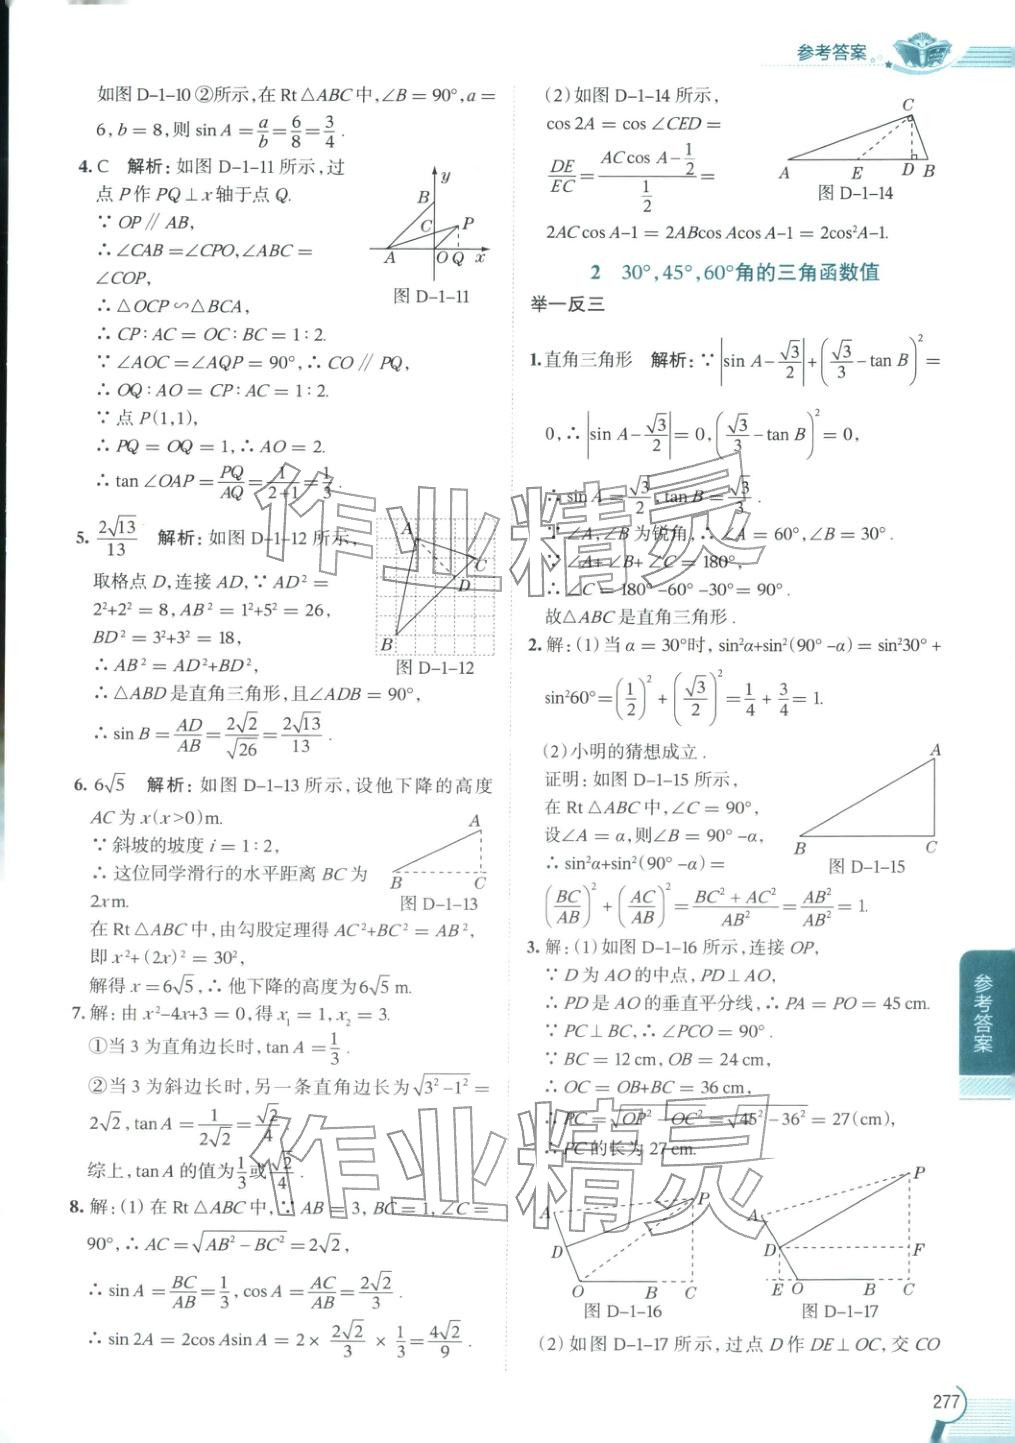 参考答案
如图 D-1-10 ②所示,在 Rt△ABC 中,∠B = 90°,a =
6,b = 8,则 sin A = a/b = 6/8 = 3/4 .
4. C 解析: 如图 D-1-11 所示,过
点 P 作 PQ⊥x 轴于点 Q.
∵ OP∥AB,
∴ ∠CAB = ∠CPO,∠ABC =
∠COP,
∴ △OCP∽△BCA,
∴ CP∶AC = OC∶BC = 1∶2.
∵ ∠AOC = ∠AQP = 90°,∴ CO∥PQ,
∴ OQ∶AO = CP∶AC = 1∶2.
∵ 点 P(1,1),
∴ PQ = OQ = 1,∴ AO = 2.
∴ tan∠OAP = PQ/AQ = 1/(2+1) = 1/3 .
y
B
C
P
A
O
Q
x
图 D-1-11
5. 2√13/13 解析: 如图 D-1-12 所示,
取格点 D,连接 AD,∵ AD² =
2²+2² = 8,AB² = 1²+5² = 26,
BD² = 3²+3² = 18,
∴ AB² = AD²+BD²,
∴ △ABD 是直角三角形,且∠ADB = 90°,
∴ sin B = AD/AB = 2√2/√26 = 2√13/13 .
A
C
D
B
图 D-1-12
6. 6√5 解析: 如图 D-1-13 所示,设他下降的高度
AC 为 x(x>0)m.
∵ 斜坡的坡度 i = 1∶2,
∴ 这位同学滑行的水平距离 BC 为
2x m.
在 Rt△ABC 中,由勾股定理得 AC²+BC² = AB²,
即 x²+(2x)² = 30²,
解得 x = 6√5,∴ 他下降的高度为 6√5 m.
A
B
C
图 D-1-13
7. 解: 由 x²-4x+3 = 0,得 x₁ = 1,x₂ = 3.
①当 3 为直角边长时,tan A = 1/3 .
②当 3 为斜边长时,另一条直角边长为√(3²-1²) =
2√2,tan A = 1/(2√2) = √2/4 .
综上,tan A 的值为 1/3 或 √2/4 .
8. 解: (1) 在 Rt△ABC 中,∵ AB = 3,BC = 1,∠C =
90°,∴ AC = √(AB²-BC²) = 2√2,
∴ sin A = BC/AB = 1/3,cos A = AC/AB = 2√2/3 .
∴ sin 2A = 2cos Asin A = 2× 2√2/3 × 1/3 = 4√2/9 .
(2) 如图 D-1-14 所示,
cos 2A = cos∠CED =
DE/EC = (ACcos A-1/2)/(1/2) =
2ACcos A-1 = 2ABcos Acos A-1 = 2cos²A-1.
C
A
E
D
B
图 D-1-14
2 30°,45°,60°角的三角函数值
举一反三
1. 直角三角形 解析: ∵ |sin A-√3/2|+(√3/3-tan B)² =
0,∴ |sin A-√3/2| = 0,(√3/3-tan B)² = 0,
∴ sin A = √3/2,tan B = √3/3 .
∵ ∠A,∠B 为锐角,∴ ∠A = 60°,∠B = 30°.
∵ ∠A+∠B+∠C = 180°,
∴ ∠C = 180°-60°-30° = 90°.
故△ABC 是直角三角形.
2. 解: (1) 当 α = 30°时, sin²α+sin²(90°-α) = sin²30°+
sin²60° = (1/2)²+(√3/2)² = 1/4+3/4 = 1.
(2)小明的猜想成立.
证明: 如图 D-1-15 所示,
在 Rt△ABC 中,∠C = 90°,
设∠A = α,则∠B = 90°-α,
∴ sin²α+sin²(90°-α) =
(BC/AB)²+(AC/AB)² = (BC²+AC²)/AB² = AB²/AB² = 1.
A
B
C
图 D-1-15
3. 解: (1) 如图 D-1-16 所示,连接 OP,
∵ D 为 AO 的中点,PD⊥AO,
∴ PD 是 AO 的垂直平分线,∴ PA = PO = 45 cm.
∵ PC⊥BC,∴ ∠PCO = 90°.
∵ BC = 12 cm,OB = 24 cm,
∴ OC = OB+BC = 36 cm,
∴ PC = √(OP²-OC²) = √(45²-36²) = 27(cm),
∴ PC 的长为 27 cm.
P
A
D
O
B
C
图 D-1-16
P
A
D
F
E
O
B
C
图 D-1-17
(2) 如图 D-1-17 所示,过点 D 作 DE⊥OC,交 CO
参考答案
作业精灵
作业精灵
277